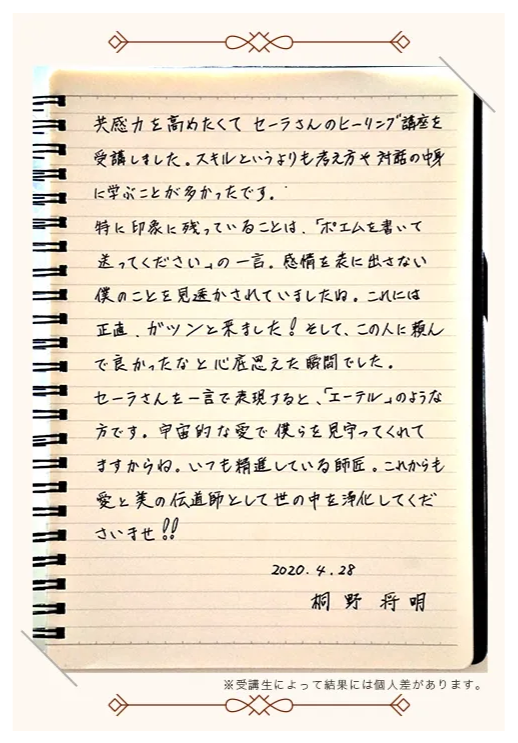 共感力を高めたくて セーラさんのヒーリング講座を
受講しました。スキルというよりも考え方や対話の中身
に学ぶことが多かったです。
特に印象に残っていることは、「ポエムを書いて
送ってください」の一言。感情を表に出さない
僕のことを見透かされていましたね。これには
正直、ガツンと来ました!そして、この人に頼ん
で良かったなと心底思えた瞬間でした。
セーラさんを一言で表現すると、「エーテル」のような
方です。宇宙的な愛で僕らを見守ってくれて
ますからね。いつも精進している師匠。これからも
愛と美の伝道師として世の中を浄化してくだ
さいませ!!
2020.4.28
桐野 将明
※受講生によって結果には個人差があります。